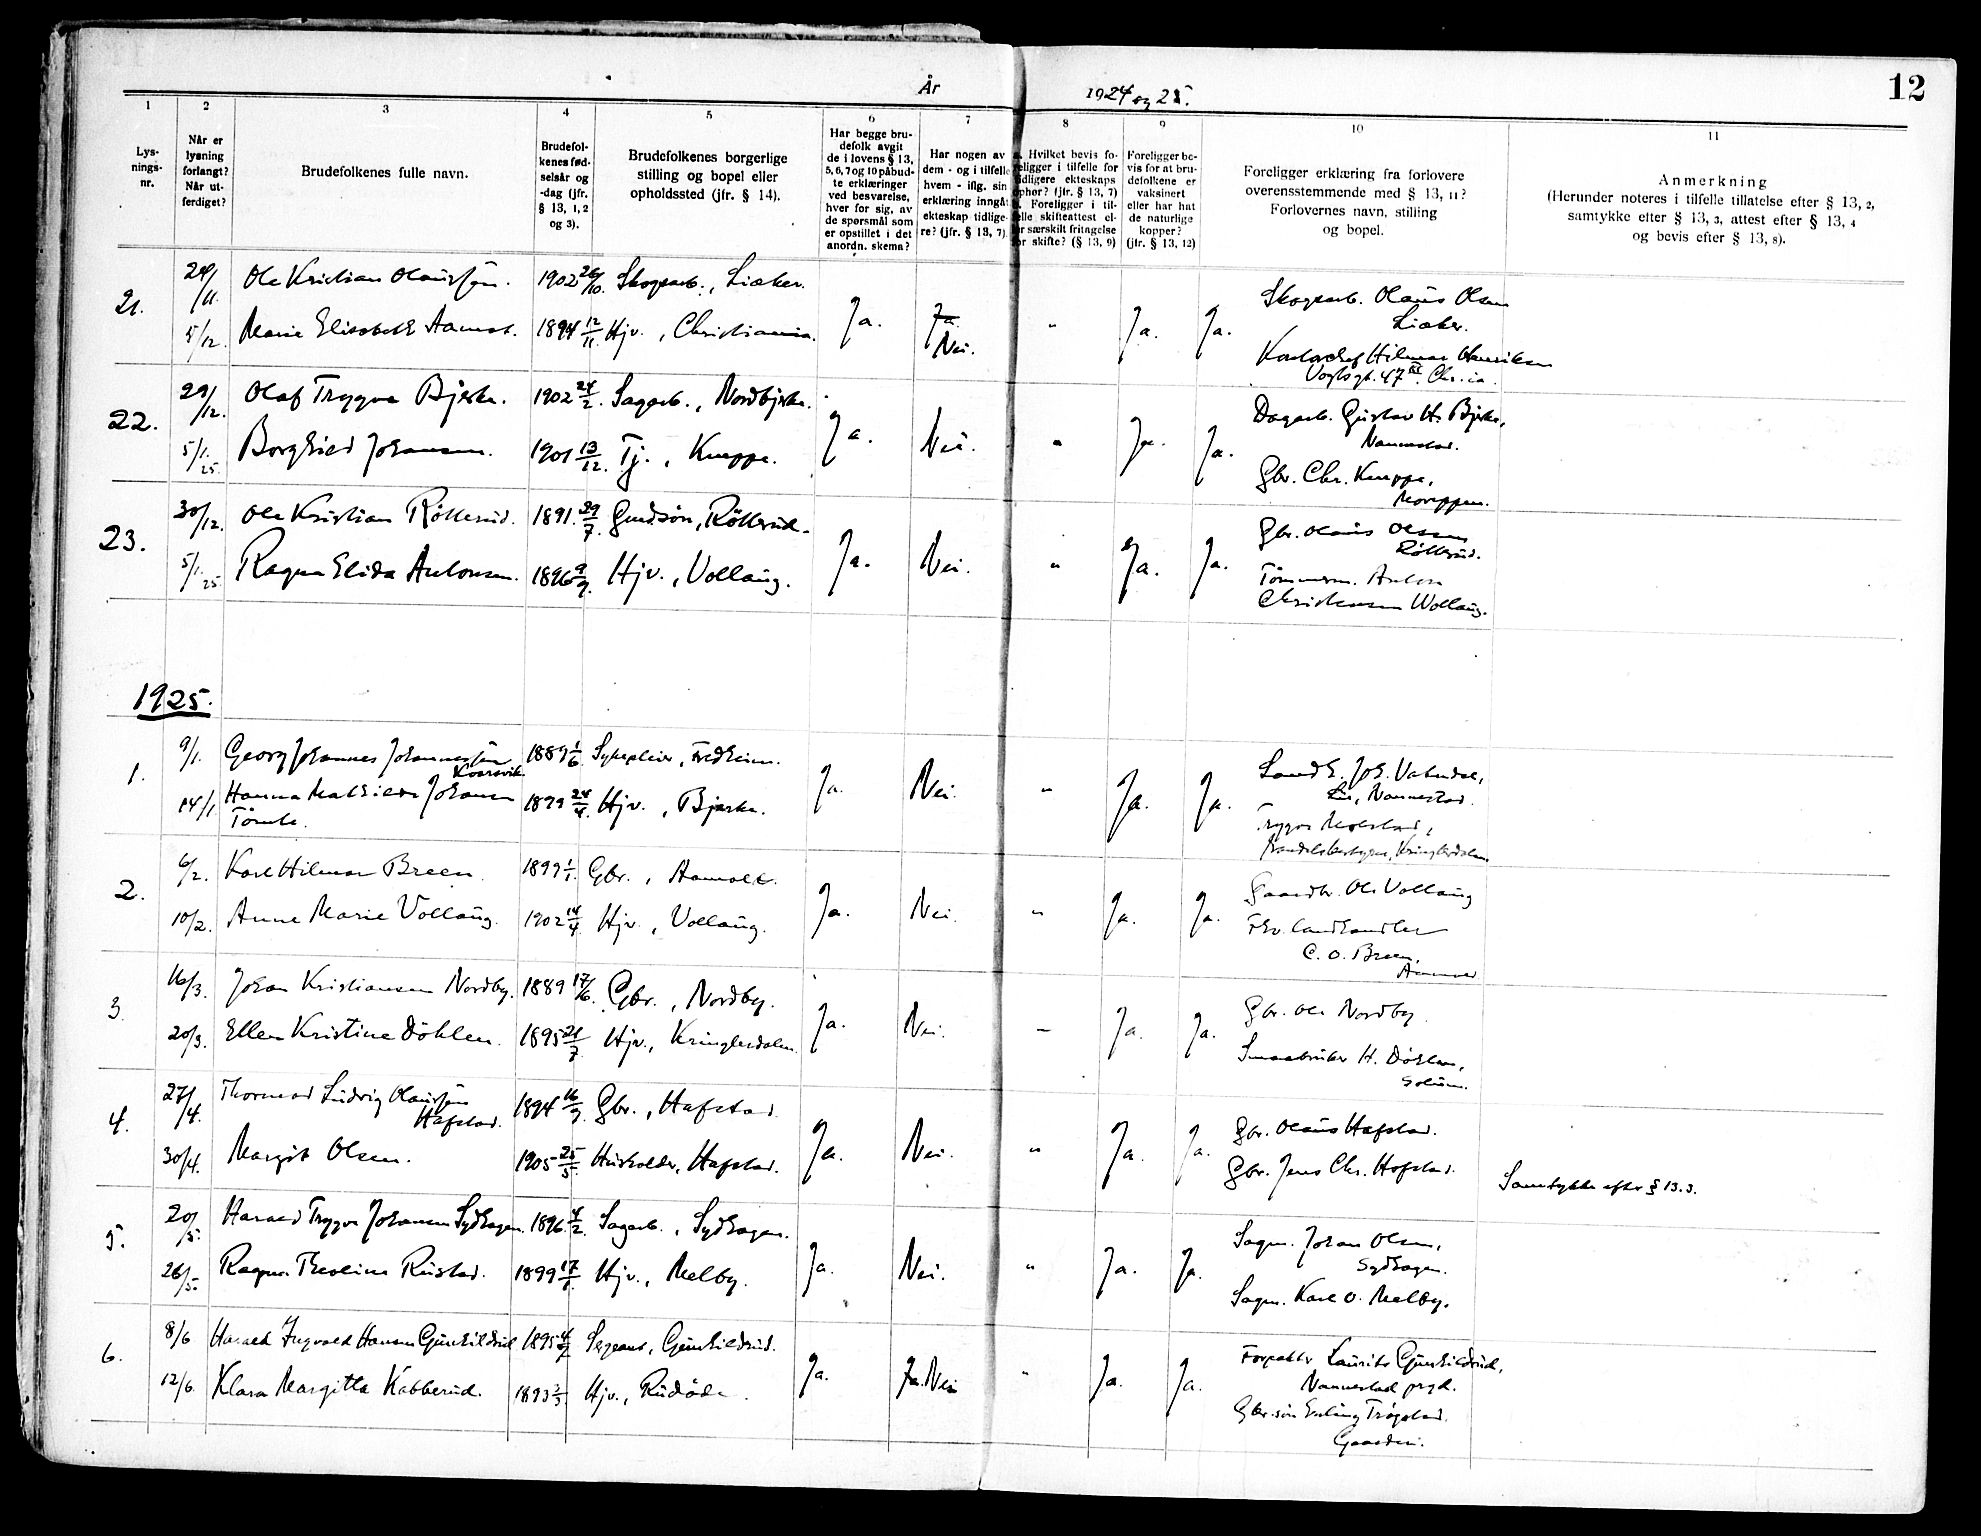 År 1924 og 25.
12
1 2 3 4 5 6 7 8 9 10 11
Lys-
nings-
nr.
Når er
lysning
forlangt?
Når ut-
ferdiget?
Brudefolkenes fulle navn.
Brudefol-
kenes fød-
selsår og
-dag (jfr.
§ 13, 1, 2
og 3).
Brudefolkenes borgerlige
stilling og bopel eller
opholdssted (jfr. § 14).
Har begge bru-
defolk avgit
de i lovens § 13,
5, 6, 7 og 10 påbud-
te erklæringer
ved besvarelse,
hver for sig, av
de spørsmål som
er opstillet i det
anordn. skema?
Har nogen av
dem - og i tilfelle
hvem - iflg. sin
erklæring inngåt
ekteskap tidlige-
re? (jfr. § 13, 7).
a. Hvilket bevis fo-
religger i tilfelle for
tidligere ekteskaps
ophør? (jfr. § 13, 7)
Foreligger i til-
felle skifteattest el-
er særskilt fritagelse
for skifte? (§ 13, 9)
Foreligger be-
vis for at bru-
defolkene er
vaksinert
eller har hat
de naturlige
kopper?
(jfr. § 13, 12)
Foreligger erklæring fra forlovere
overensstemmende med § 13, 11?
Forlovernes navn, stilling
og bopel.
Anmerkning
(Herunder noteres i tilfelle tillatelse efter § 13, 2,
samtykke efter § 13, 3, attest efter § 13, 4
og bevis efter § 13, 8).
21.
24/11. Ole Kristian Olaussøn. 1902 26/10. Skogsarb., Liaker.
5/12. Marie Elisabeth Aamot. 1894 12/11. Hjv., Christiania.
Ja. Ja. Nei. " Ja. Ja.
Skogsarb. Olaus Olsen
Liaker.
Hilmar Henriksen
47 Chr.ia.
22.
29/12. Olaf Trygve Bjerke. 1902 24/2. Sagarb., Nordbjerke.
5/1.25. Borghild Johansen. 1901 13/12. Tj., Kneppe.
Ja. Nei. " Ja. Ja.
Dagarb. Gustav H. Bjerke,
Nannestad.
Gbr. Chr. Kneppe,
23.
30/12. Ole Kristian Røtterud. 1891. 29/7. Gmdsøn, Røtterud.
5/1.25. Ragna Elida Antonsen. 1896 9/9. Hjv., Vollaug.
Ja. Nei. " Ja. Ja.
Gbr. Olaus Olsen
Røtterud.
Tømmerm. Anton
Christensen Wollaug.
1925.
1.
9/1. Georg Johannes Johannessøn
Kvarsvik. 1889 1/6 Sykepleier, Fredheim.
14/1 Hanna Mathilde Johansen
Tømte. 1899 24/4. Hjv., Bjerke.
Ja. Nei. " Ja. Ja.
Landh. Joh. Vatndal,
Li, Nannestad.
Trygve Molstad,
Handelsbestyrer, Kringlerdalen
2.
6/2. Karl Hilmar Breen. 1899 1/1. Gbr., Aamodt.
10/2. Anne Marie Vollaug. 1902 14/4 Hjv., Vollaug.
Ja. Nei. " Ja. Ja.
Gaardbr. Ole Vollaug
Fhv. landhandler
C. O. Breen,
Aamodt
3.
16/3. Johan Kristiansen Nordby. 1889 17/6. Gbr., Nordby.
20/3. Ellen Kristine Døhlen. 1895 21/7 Hjv., Kringlerdalen.
Ja. Nei. " Ja. Ja.
Gbr. Ole Nordby.
Smaabruker H. Døhlen,
Solum.
4.
27/4. Thormod Ludvig Olaussøn
Hafstad. 1894 16/9 Gbr., Hafstad.
30/4. Margit Olsen. 1905 25/5. Husholder, Hafstad.
Ja. Nei. " Ja. Ja.
Gbr. Olaus Hafstad.
Gbr. Jens Chr. Hofstad.
Samtykke efter § 13.3.
5.
20/5. Harald Trygve Johansen Sydhagen. 1896. 4/2. Sagarb., Sydhagen.
26/5. Ragna Theoline Rustad. 1899 17/ Hjv., Melby.
Ja. Nei. " Ja. Ja.
Sagm. Johan Olsen,
Sydhagen.
Sagm. Karl O. Melby.
6.
8/6 Harald Ingvald Hansen Gunhildrud 1895 Sergeant, Gunhildrud.
12/6. Klara Margitta Kabberud. 1893 2/3 Hjv., Rudøde.
Ja. Ja. Nei " Ja. Ja.
Forpakter Laurits Gunhildrud,
Nannestad prgd.
Gbr.søn Erling Trøgstad.